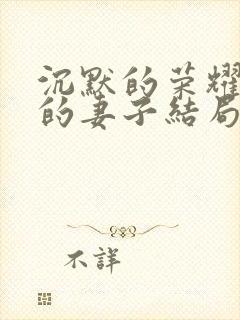 沉默的荣耀
的妻子結局
不詳